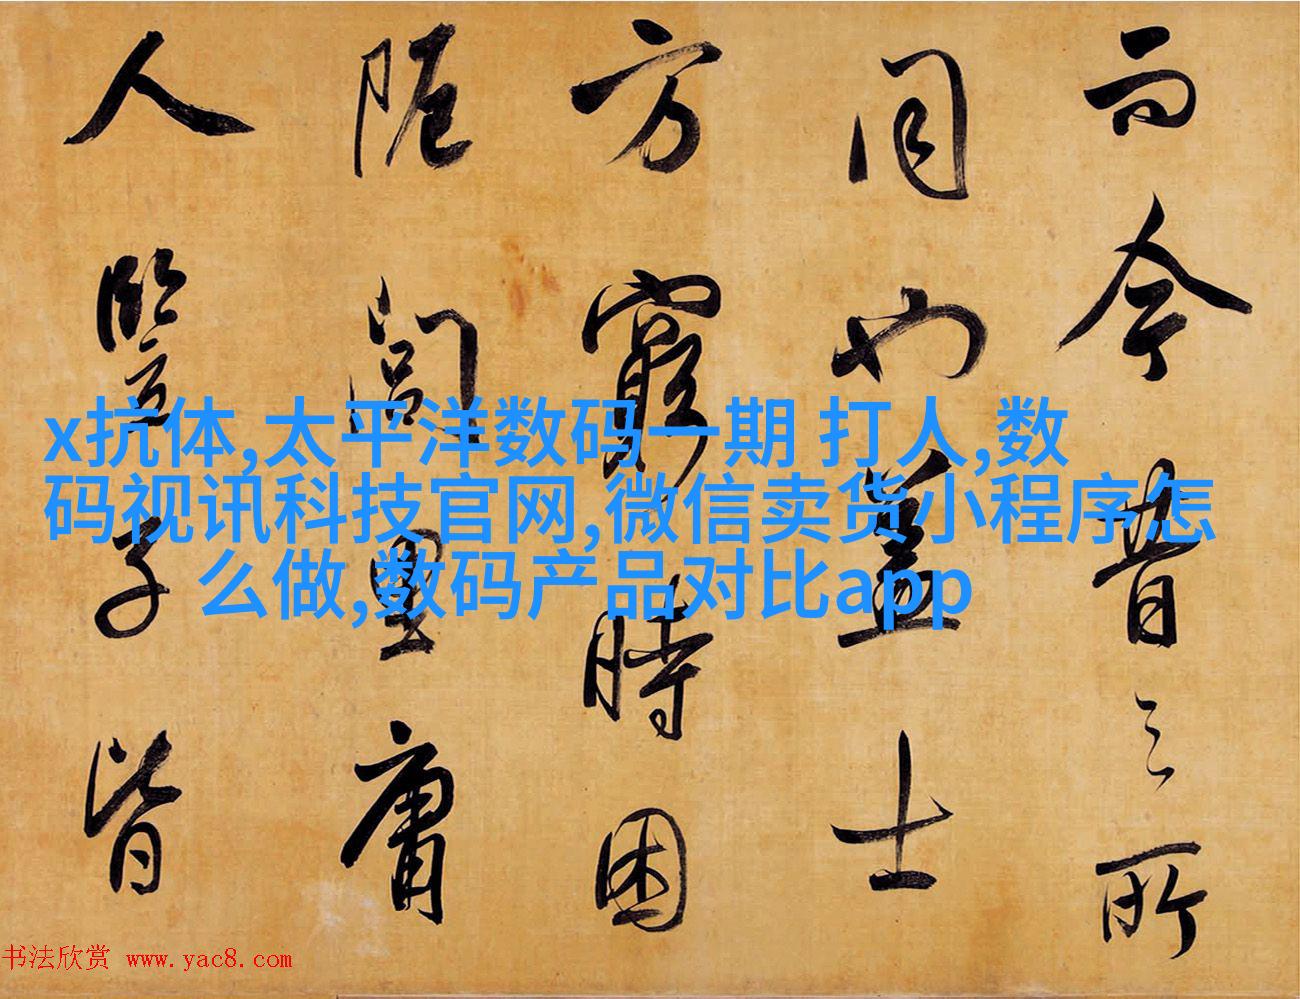 而今昔之所
同也盖士
方窮時困
阨閭里庸
人豎子皆
x抗体,太平洋数码一期 打人,数
码视讯科技官网,微信卖货小程序怎
么做,数码产品对比app
书法欣赏 www.yac8.com